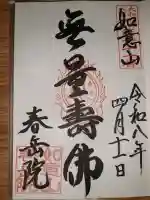 如意山
令和八年
四月十一日
無量壽佛
春岳院